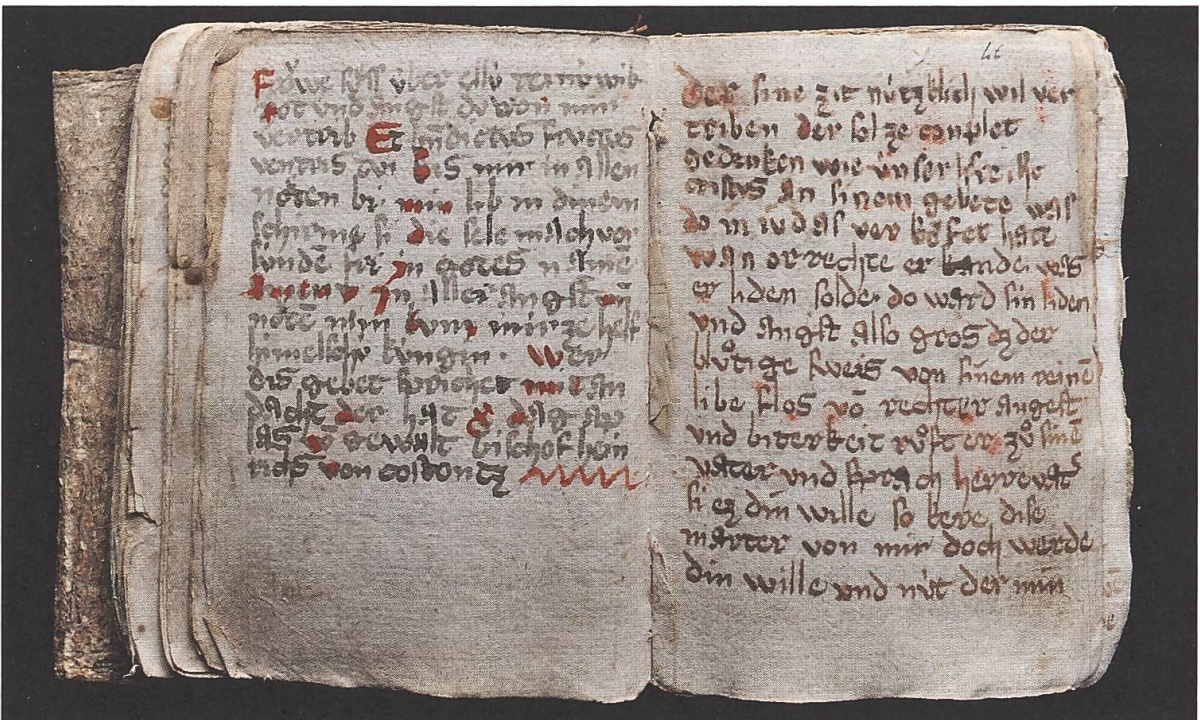 Frowe süss über ellü reinü wib
not vnd angst do von mir
vertrib Et bndictus fructus
ventris tui Bis mir in allen
nöten bi min lib in dinem
schirme si die sele mich vor
sünde fri in gotes name
amen In aller angst vn
hilf
himelsche küngin. Wer
dis gebet sprichet mit an
dacht der hat x dag ap
las vō gewalt bischof hein
richs von costentz
46
Der sine zit nützklich wil ver
triben der sol ze conplet
gedenken wie vnser herre
cristus an sinem gebete was
do in iudas ver köfet hatt
wan er rechte er kande was
er liden solde. do ward sin liden
vnd angst also gros dz der
blůtige sweis von sinem reinē
libe flos vō rechter angest
vnd biterkeit růft er zů sinē
vater vnd sprach herre vatt
si ez din wille so kere dise
marter von mir doch werde
din wille vnd nüt der min